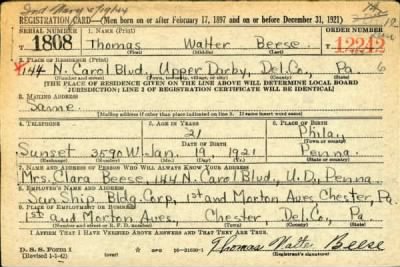 2nd Navy
REGISTRATION CARD—(Men born on or after February 17, 1897 and on or before December 31, 1921)
SERIAL NUMBER
1. NAME (Print)
ORDER NUMBER
T 1808
Thomas Walter Beese
12242
(First) (Middle) (Last)
2. PLACE OF RESIDENCE (Print)
144 N. Carol Blvd, Upper Darby, Del. Co., Pa.
[THE PLACE OF RESIDENCE GIVEN ON THE LINE ABOVE WILL DETERMINE LOCAL BOARD
JURISDICTION; LINE 2 OF REGISTRATION CERTIFICATE WILL BE IDENTICAL]
3. MAILING ADDRESS
Same.
[Mailing address if other than place indicated on line 2. If same insert word same]
4. TELEPHONE
5. AGE IN YEARS
6. PLACE OF BIRTH
21
Phila,
DATE OF BIRTH
Sunset 3590W
Jan. 19, 1921
Penna.
7. NAME AND ADDRESS OF PERSON WHO WILL ALWAYS KNOW YOUR ADDRESS
Mrs. Clara Beese, 144 N. Carol Blvd., U.D., Penna.
8. EMPLOYER'S NAME AND ADDRESS
Sun Ship. Bldg. Corp, 1st and Morton Aves, Chester, Pa.
9. PLACE OF EMPLOYMENT OR BUSINESS
1st and Morton Aves, Chester, Del. Co., Pa.
(Number and street or R. F. D. number) (Town) (County) (State)
I AFFIRM THAT I HAVE VERIFIED ABOVE ANSWERS AND THAT THEY ARE TRUE.
D. S. S. Form 1
(Revised 1-1-42) (over)
GPO
16—21630-1
Thomas Walter Beese
(Registrant's signature)